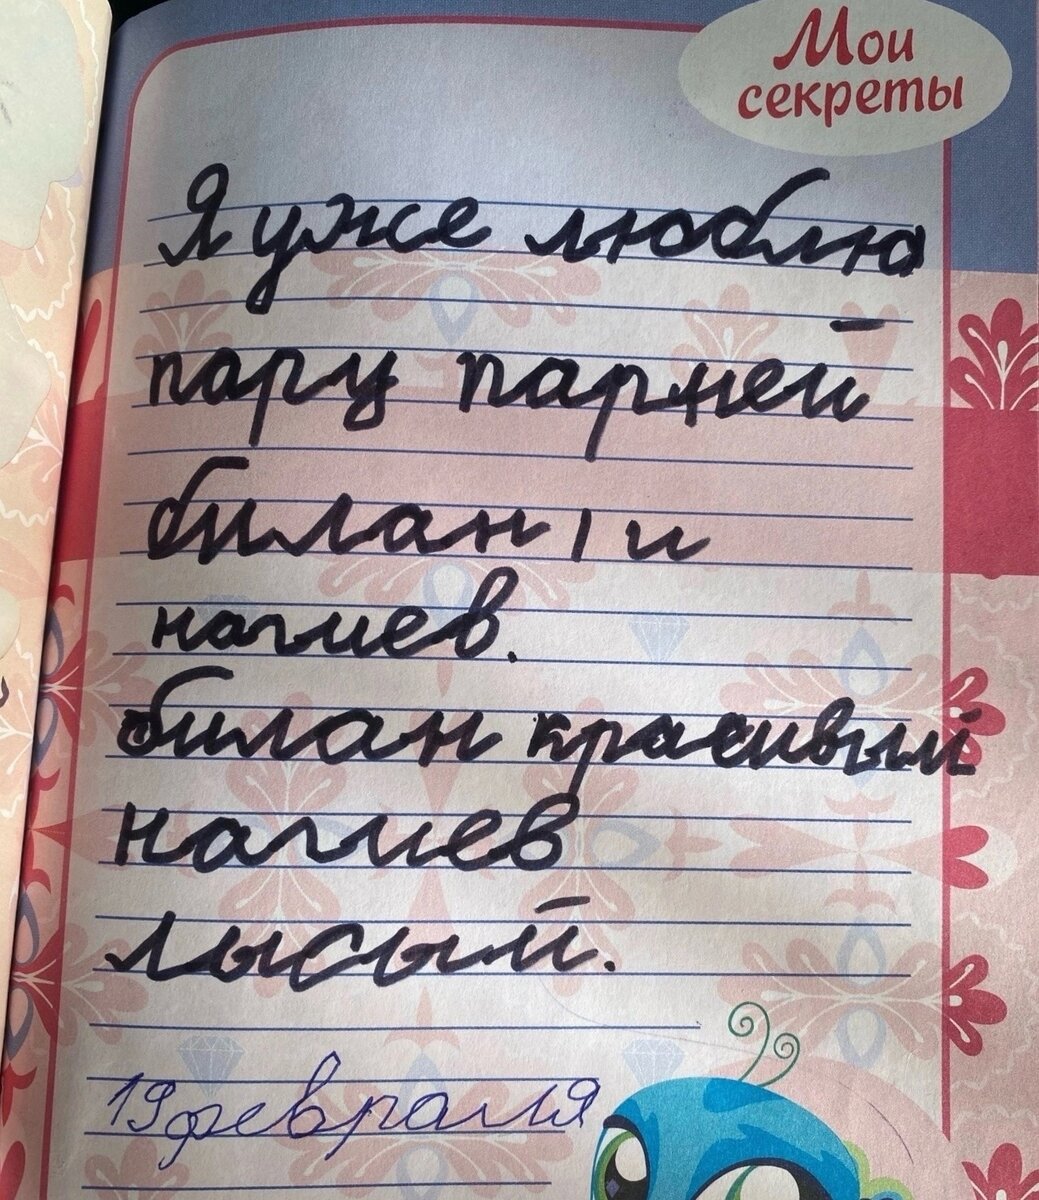 Мои
секреты
Я уже люблю
пару парней
билан, и
нагиев.
билан красивый
нагиев
лысый.
19 февраля